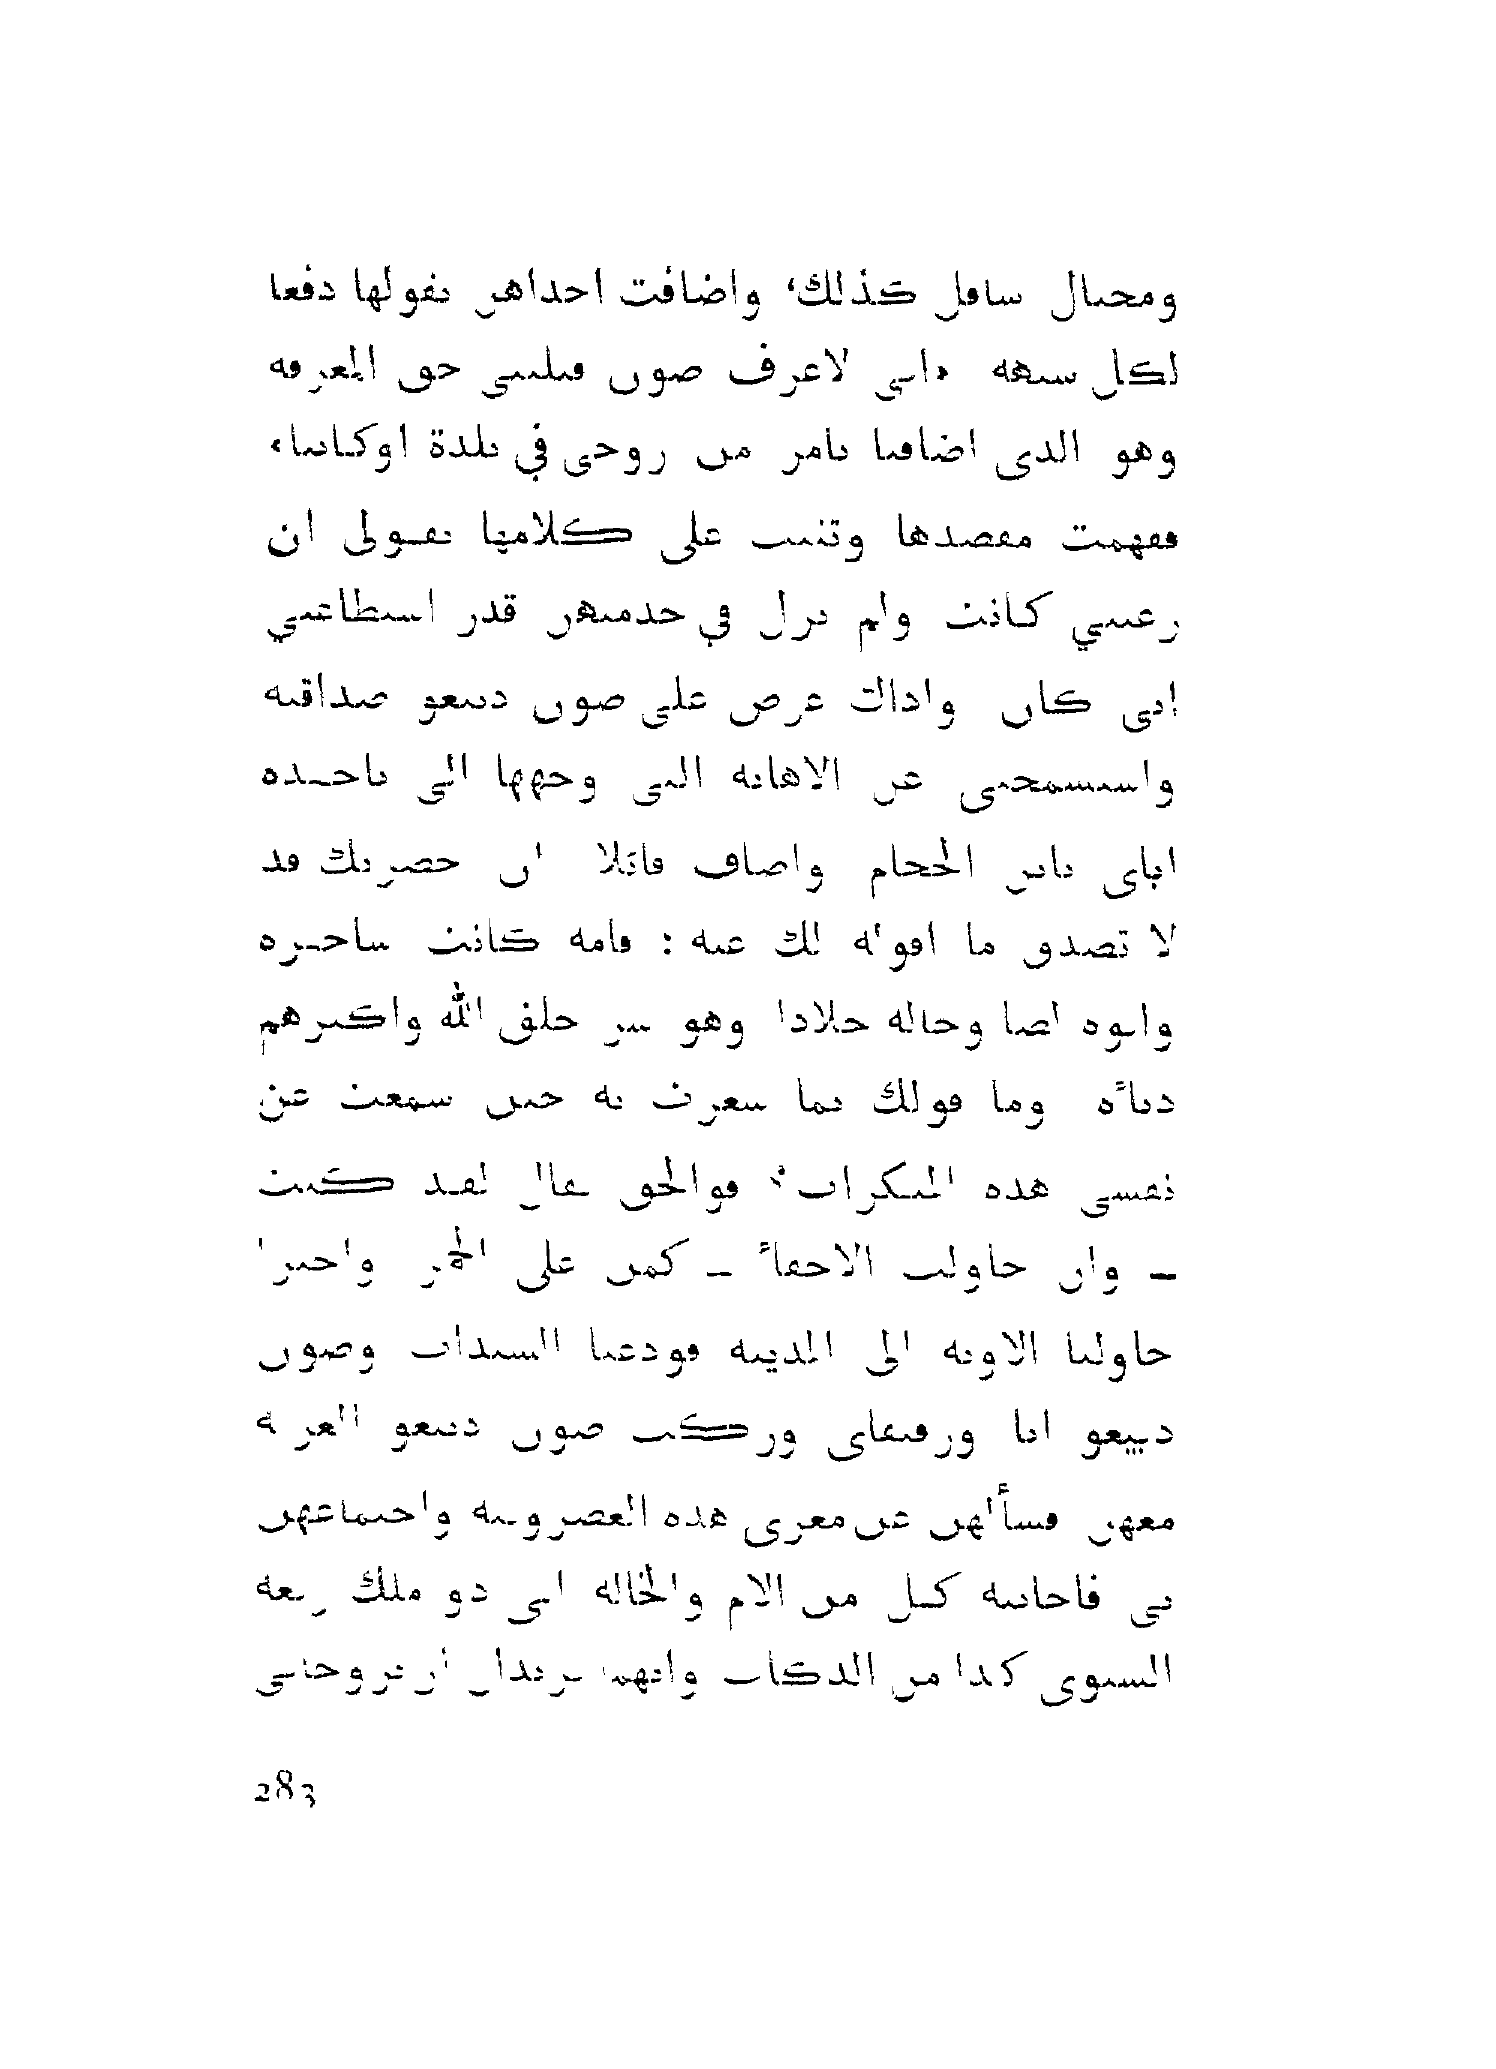 ومحتال سافل كذلك، واضافت احداهن بقولها دفعا
لكل شبهه «انى لاعرف صون فيليبى حق المعرفه
وهو الذى اضافنا بامر من زوجى في بلدة اوكانيا»
ففهمت مقصدها وثنيت على كلاميها بقـولى ان
رغبتي كانت ولم تزل في خدمتهن قدر استطاعتي
انى كان واذاك عرض على صون دييغو صداقته
واستسمحنى عن الاهانه التى وجهها الى باخـذه
اياى بابن الحجام واضاف قائلا ان حضرتك قد
لا تصدق ما اقوله لك عنه : فامه كانت ساحـره
وابوه لصا وخاله جلادا وهو شر خلق الله واكثرهم
دناءه وما قولك بما شعرت به حين سمعت عن
نفسى هذه المنكرات؟ فوالحق يقال لقـد كنت
– وان حاولت الاخفاء – كمن على الجمر واخيرا
حاولنا الاوبه الى المدينه فودعنا السيدات وصون
دييغو انا ورفيقاى وركب صون دييغو العربه
معهن فسألهن عن مغزى هذه العصرونيه واجتماعهن
بى فاجابته كـل من الام والخاله انى ذو ملك ريعه
السنوى كذا من الدكات وانهما يريدان ان تزوجانى
283